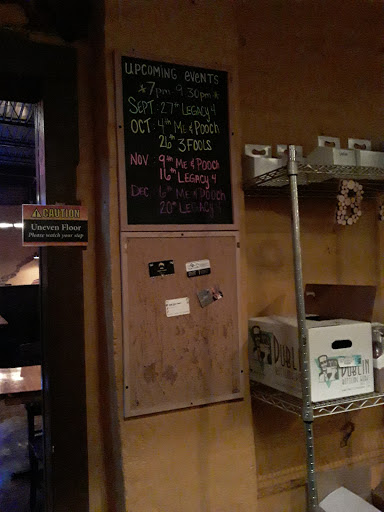 UPCOMING EVENTS
*7pm-9:30pm*
SEPT: 27th LEGACY 4
OCT: 4th ME & POOCH
26th 3 FOOLS
NOV 9th ME & POOCH
16th LEGACY 4
DEC 6th ME & POOCH
20th LEGACY 4
CAUTION
Uneven Floor
Please watch your step
DUBLIN
DUBLIN